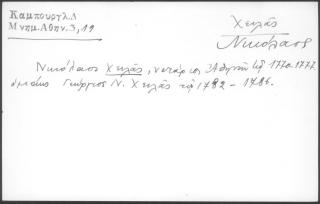 Καμπουργλ.Δ
Μνημ.Αθην.3,19
Χειλᾶς
Νικόλαος
Νικόλαος Χειλᾶς, νοτάριος Ἀθηνῶν 1770.1777
ὁμοίως Γεώργιος Ν. Χειλᾶς 1782 - 1786.